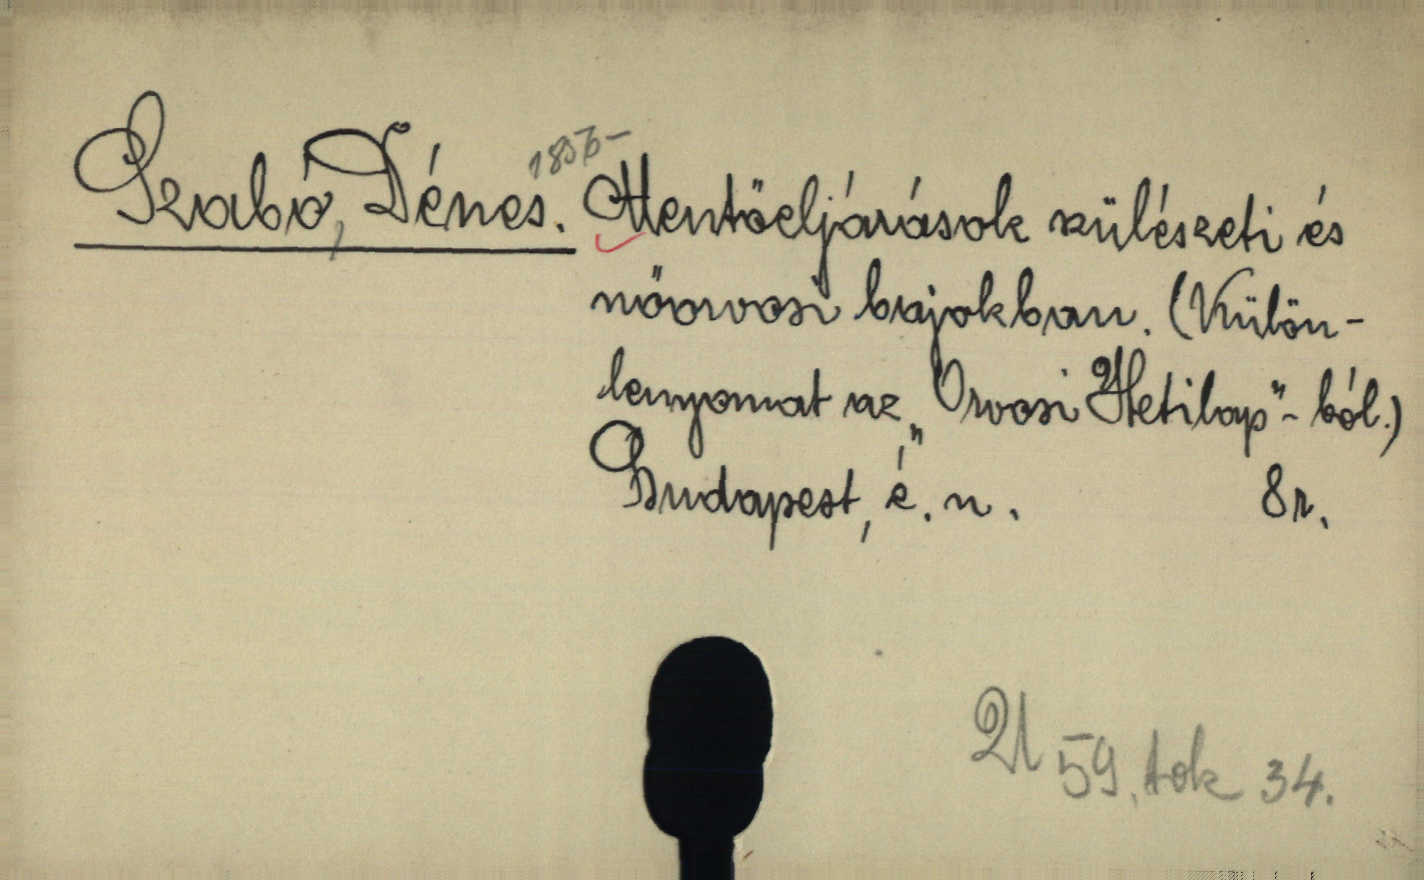 Szabó, Dénes. 1856- Mentőeljárások szülészeti és
nőorvosi bajokban. (Külön-
lenyomat az „Orvosi Hetilap"-ból.)
Budapest, é. n. 8r.
59. tok 34.